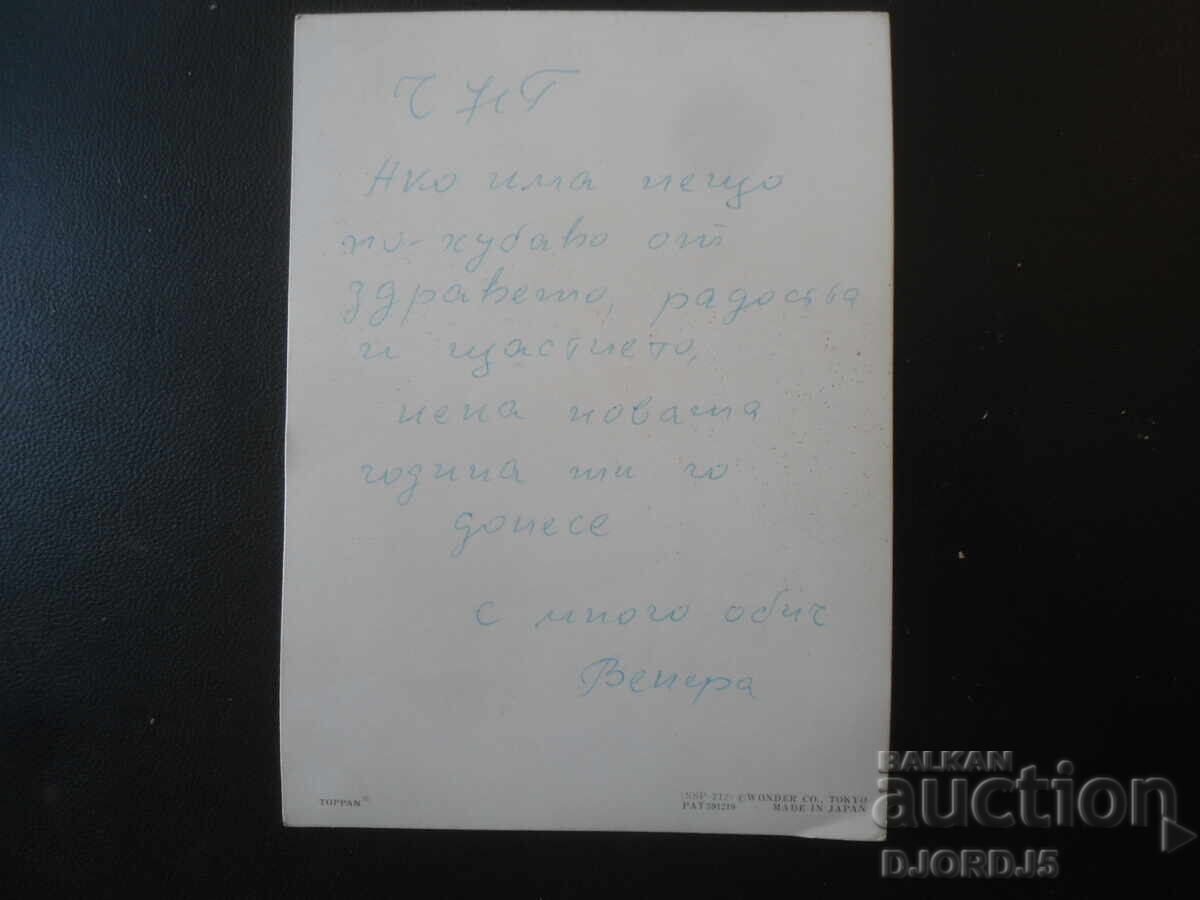 ЧНГ
Ако има нещо
по-хубаво от
здравето, радостта
и щастието,
нека новата
година ти го
донесе
с много обич
Венера
TOPPAN®
(SSP-212) ©WONDER CO., TOKYO
PAT391219 MADE IN JAPAN
BALKAN
auction
DJORDJ5